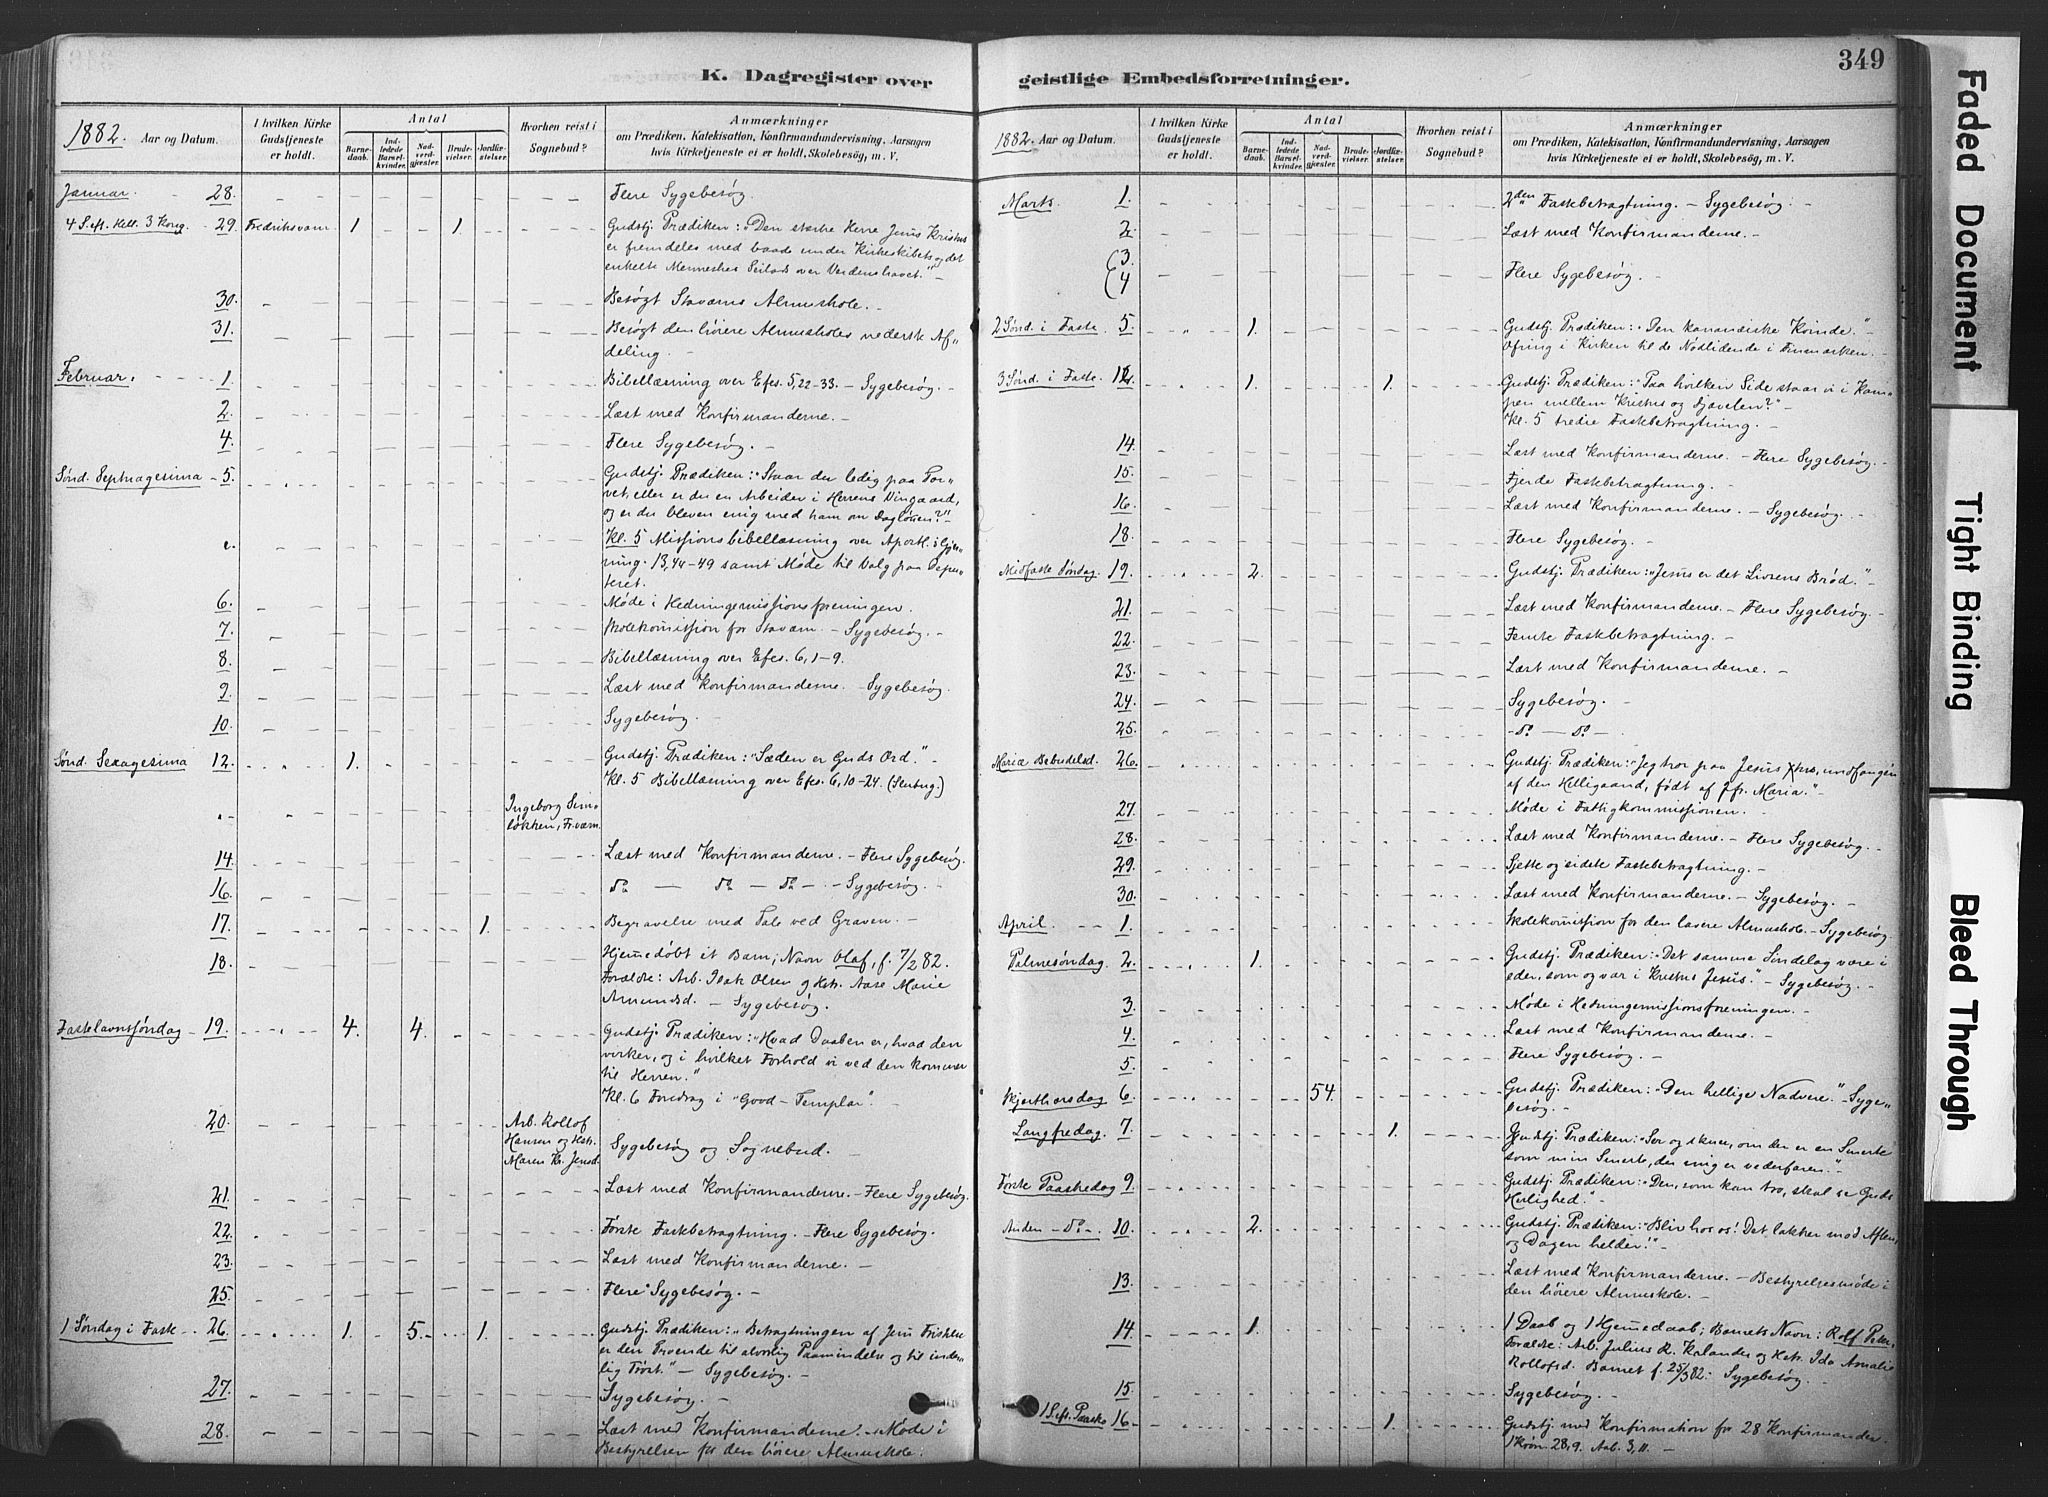 K. Dagregister over
1882. Aar og Datum.
I hvilken Kirke Gudstjeneste er holdt.
Antal
Barnedaab.
Indledede Barselkvinder.
Nadverdgjester.
Brudevielser.
Jordfæstelser.
Hvorhen reist i Sognebud?
Anmærkninger
om Prædiken, Katekisation, Konfirmandundervisning, Aarsagen
hvis Kirketjeneste ei er holdt, Skolebesøg, m. V.
Januar 28. Flere Sygebesøg.
4 S. eft. Hell. 3 Kong. 29. Fredriksværn 1 1 Gudstj. Prædiken: "Den stærke Herre Jesus Kristus
er fremdeles med baade under Kirkeskibets og det
enkelte Menneskes Seilads over Verdenshavet." -
30. Besøgt Staværns Almuskole. -
31. Besøgt den høiere Almuskoles nederste Af-
deling. -
Februar: 1. Bibellæsning over Efes. 5,22-33. - Sygebesøg. -
2. Læst med Konfirmanderne. -
4. Flere Sygebesøg. -
Sønd. Septuagesima - 5. Gudstj. Prædiken: "Staar du ledig paa Tor-
vet, eller er du en Arbeider i Herrens Vingaard,
og er du bleven enig med ham om Daglønnen?" -
Kl. 5 Missionsbibellæsning over Apostl. Gjer-
ning. 13,44-49 samt Møde til Valg paa Depu-
teret.
6. Møde i Hedningemissionsforeningen.
7. Skolekommission for Staværn. - Sygebesøg. -
8. Bibellæsning over Efes. 6,1-9.
9. Læst med Konfirmanderne. - Sygebesøg.
10. Sygebesøg. -
Sønd. Sexagesima 12. 1. Gudstj. Prædiken: "Sæden er Guds Ord." -
Kl. 5 Bibellæsning over Efes. 6,10-24. (Slutng.)
Ingeborg Sim-
løkken, Fr.værn.
14. Læst med Konfirmanderne. - Flere Sygebesøg.
16. do - do - do - Sygebesøg. -
17. 1. Begravelse med Tale ved Graven. -
18. Hjemmedøbt et Barn; Navn Olaf, f. 7/2 82.
Forældre: Arb. Isak Olsen og Hstr. Aase Marie
- Sygebesøg.
Fastelavnssøndag - 19. 4. 4. Gudstj. Prædiken: "Hvad Daaben er, hvad den
virker, og i hvilket Forhold vi ved den kommer
til Herren."
Kl. 6 Foredrag i "Good-Templar".
20. Arb. Rollof
Hansen og Hstr.
Maren Kr. Jensd. Sygebesøg og Sognebud.
21. Læst med Konfirmanderne. - Flere Sygebesøg.
22. Første Fastebetragtning. - Flere Sygebesøg.
23. Læst med Konfirmanderne. -
25. Flere Sygebesøg. -
1 Søndag i Faste 26. 1. 5. 1. Gudstj. Prædiken: "Betragtningen af Jesu Fristelse
er den Troende til alvorlig Paamindelse og til inder-
lig Trøst." - Sygebesøg. -
27. Sygebesøg. -
28. Læst med Konfirmanderne. - Møde i
Bestyrelsen for den høiere Almuskole.
349
geistlige Embedsforretninger.
1882. Aar og Datum.
I hvilken Kirke Gudstjeneste er holdt.
Antal
Barnedaab.
Indledede Barselkvinder.
Nadverdgjester.
Brudevielser.
Jordfæstelser.
Hvorhen reist i Sognebud?
Anmærkninger
om Prædiken, Katekisation, Konfirmandundervisning, Aarsagen
hvis Kirketjeneste ei er holdt, Skolebesøg, m. V.
Marts 1. 2den Fastebetragtning. - Sygebesøg. -
2. Læst med Konfirmanderne. -
3.
4 Flere Sygebesøg. -
2 Sønd. i Faste 5. 1. Gudstj. Prædiken: "Den kananæiske Kvinde." -
Ofring i Kirken til de Nødlidende i Finmarken. -
3 Sønd. i Faste. 12. 1. 1. Gudstj. Prædiken: "Paa hvilken Side staar vi i Kam-
pen mellem Kristus og Djævelen?" -
Kl. 5 tredie Fastebetragtning. -
14. Læst med Konfirmanderne. - Flere Sygebesøg. -
15. Fjerde Fastebetragtning. -
16. Læst med Konfirmanderne. - Sygebesøg. -
18. Flere Sygebesøg. -
Midfaste Søndag. 19. 2. Gudstj. Prædiken: "Jesus er det Livsens Brød." -
21. Læst med Konfirmanderne. - Flere Sygebesøg. -
22. Femte Fastebetragtning. -
23. Læst med Konfirmanderne. -
24. Sygebesøg. -
25. - do - do -
Mariæ Bebudelsd. 26. Gudstj. Prædiken: "Jeg tror paa Jesus Xtus, undfangen
af den Helligaand, født af Jfr. Maria." -
27. Møde i Fattigkommissionen.
28. Læst med Konfirmanderne. - Flere Sygebesøg. -
29. Sjette og sidste Fastebetragtning. -
30. Læst med Konfirmanderne. - Sygebesøg. -
April 1. Skolekommission for den lavere Almuskole. - Sygebesøg.
Palmesøndag 2. 1. Gudstj. Prædiken: "Det samme Sindelag være i
eder, som og var i Kristus Jesus." - Sygebesøg. -
3. Møde i Hedningemissionsforeningen. -
4. Læst med Konfirmanderne. -
5. Flere Sygebesøg. -
Skjærthorsdag 6. 54. Gudstj. Prædiken: "Den hellige Nadvere." - Syge-
besøg. -
Langfredag. 7. 1. Gudstj. Prædiken: "Ser og skuer, om der er en Smerte
som min Smerte, der mig er vederfaren." -
Første Paaskedag 9. Gudstj. Prædiken: "Den, som kan tro, skal se Guds
Herlighed." -
Anden - do - 10. 2. Gudstj. Prædiken: "Bliv hos os! Det lakker mod Aften,
og Dagen helder!" -
13. Læst med Konfirmanderne. - Bestyrelsesmøde i
den høiere Almuskole. -
14. 1. 1 Daab og 1 Hjemmedaab; Barnets Navn: Rolf
Forældre: Arb. Julius R. Erlandsen og Hstr. Ida Amalie
Rollofsd. Barnet f. 25/3 82. Sygebesøg. -
15. Sygebesøg. -
1 S. eft. Paaske 16 1. Gudstj. med Konfirmation for 28 Konfirmander.
Faded Document
Tight Binding
Bleed Through